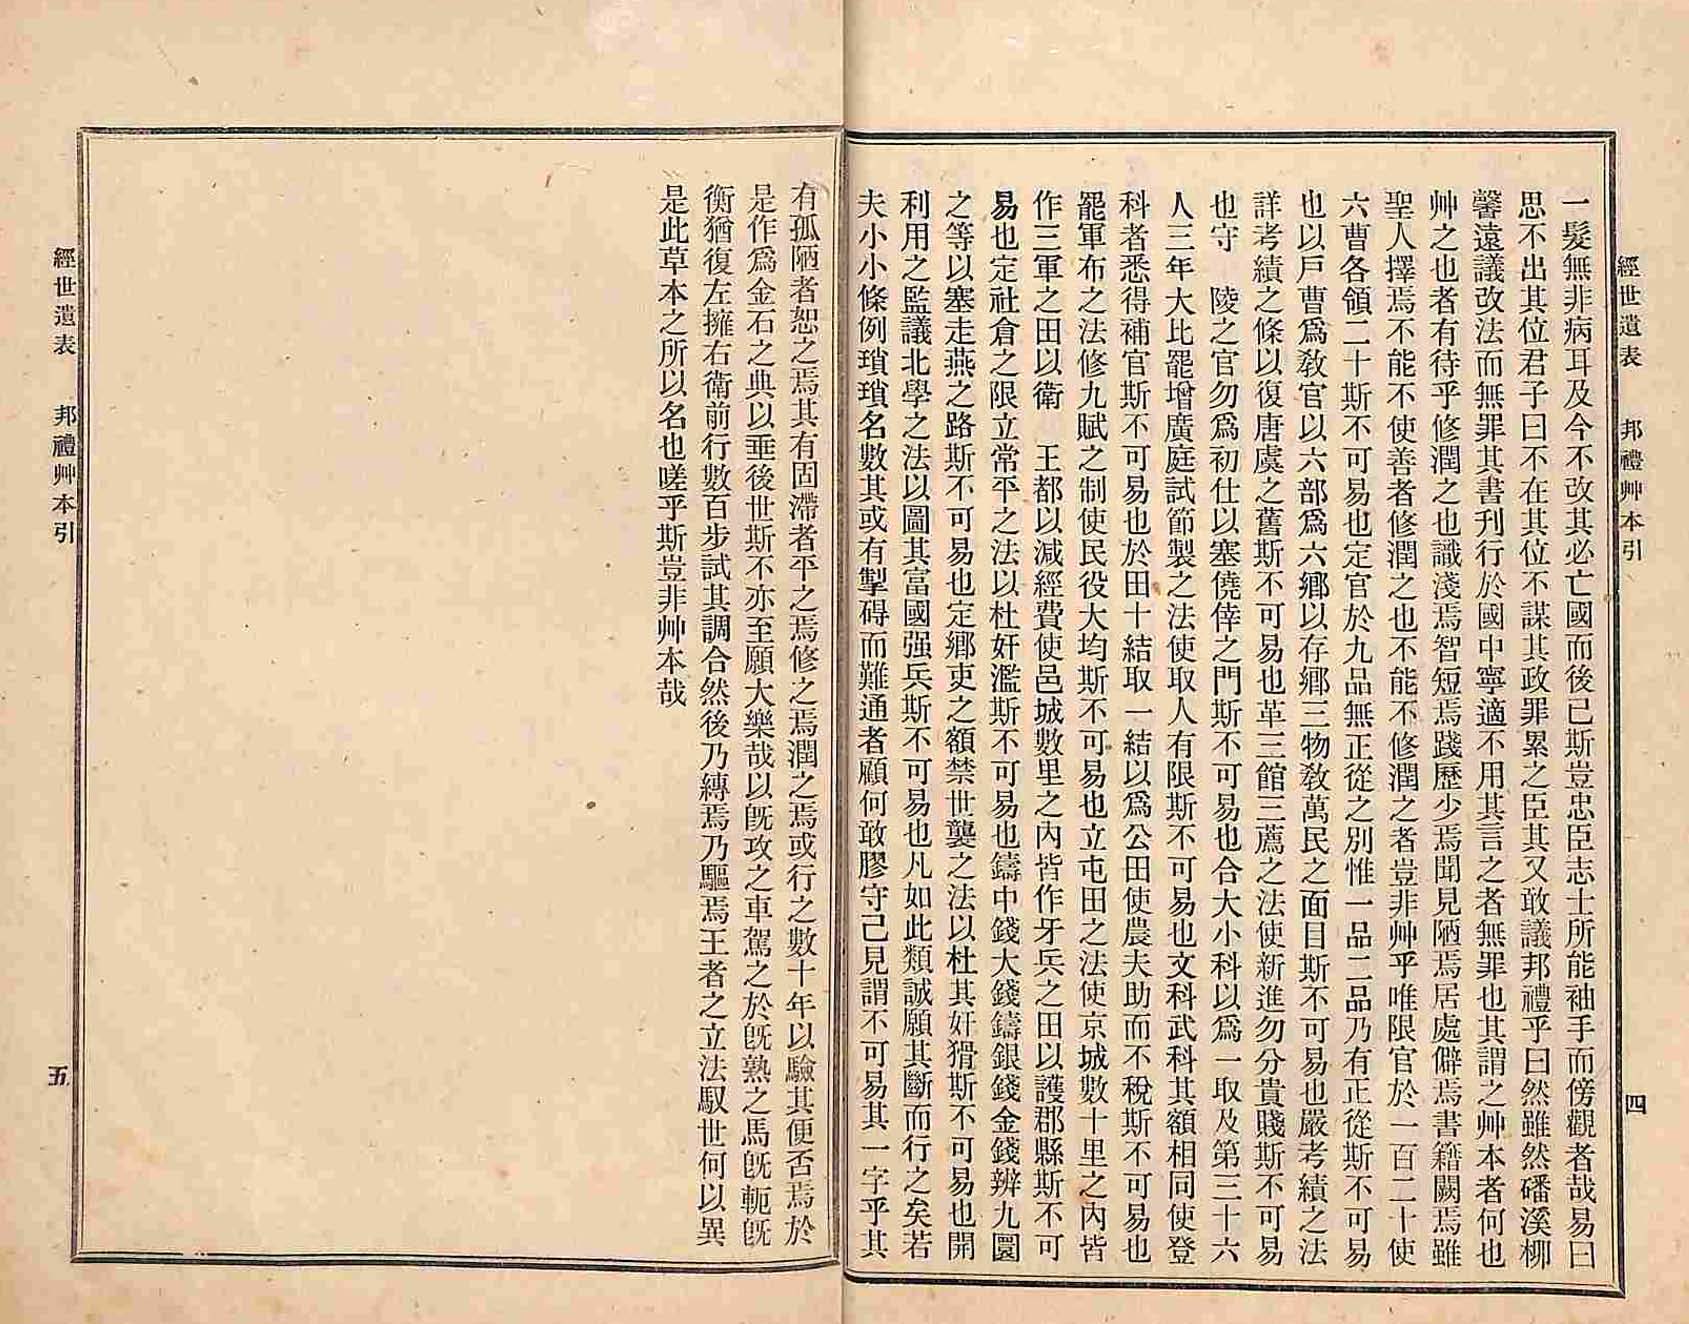 經世遺表 邦禮艸本引 四
一髮無非病耳及今不改其必亡國而後已斯豈忠臣志士所能袖手而傍觀者哉易曰
思不出其位君子曰不在其位不謀其政罪累之臣其又敢議邦禮乎曰然雖然磻溪柳
馨遠議改法而無罪其書刊行於國中寧適不用其言之者無罪也其謂之艸本者何也
艸之也者有待乎修潤之也識淺焉智短焉踐歷少焉聞見陋焉居處僻焉書籍闕焉雖
聖人擇焉不能不使善者修潤之也不能不修潤之者豈非艸乎唯限官於一百二十使
六曹各領二十斯不可易也定官於九品無正從之別惟一品二品乃有正從斯不可易
也以戶曹爲敎官以六部爲六鄉以存鄉三物敎萬民之面目斯不可易也嚴考績之法
詳考績之條以復唐虞之舊斯不可易也革三館三薦之法使新進勿分貴賤斯不可易
也守 陵之官勿爲初仕以塞僥倖之門斯不可易也合大小科以爲一取及第三十六
人三年大比罷增廣庭試節製之法使取人有限斯不可易也文科武科其額相同使登
科者悉得補官斯不可易也於田十結取一結以爲公田使農夫助而不稅斯不可易也
罷軍布之法修九賦之制使民役大均斯不可易也立屯田之法使京城數十里之內皆
作三軍之田以衛 王都以減經費使邑城數里之內皆作牙兵之田以護郡縣斯不可
易也定社倉之限立常平之法以杜奸濫斯不可易也鑄中錢大錢鑄銀錢金錢辨九圜
之等以塞走燕之路斯不可易也定鄉吏之額禁世襲之法以杜其奸猾斯不可易也開
利用之監議北學之法以圖其富國强兵斯不可易也凡如此類誠願其斷而行之矣若
夫小小條例瑣瑣名數其或有掣碍而難通者顧何敢膠守己見謂不可易其一字乎其
有孤陋者恕之焉其有固滯者平之焉修之焉潤之焉或行之數十年以驗其便否焉於
是作爲金石之典以垂後世斯不亦至願大樂哉以旣攻之車駕之於旣熟之馬旣軛旣
衡猶復左擁右衛前行數百步試其調合然後乃縳焉乃驅焉王者之立法馭世何以異
是此草本之所以名也嗟乎斯豈非艸本哉
經世遺表 邦禮艸本引 五